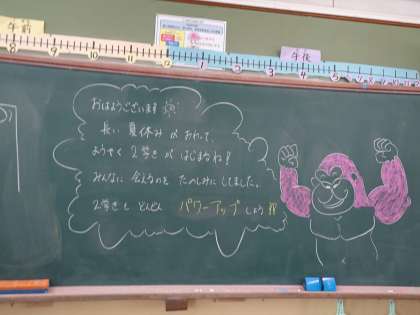 午前
午後
8 9 10 11 12 1 2 3 4 5
おはようございます
長い 夏休み が おわって、
ようやく 2学き が はじまるね!
みんなに 会えるのを たのしみにしてました。
2学きも どんどん パワーアップ しよう!!